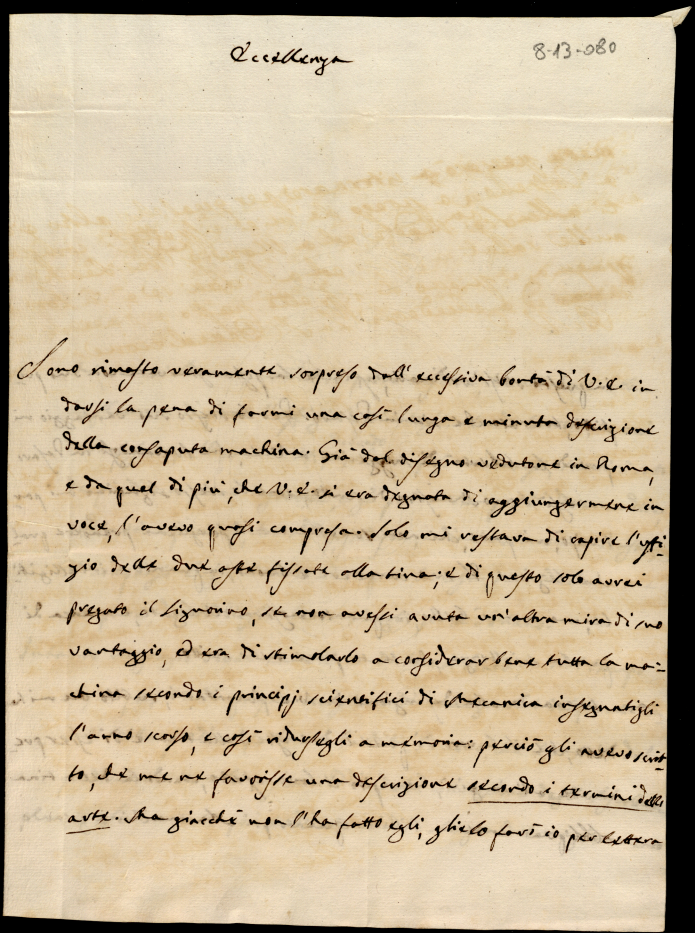 8-13-080
Eccellenza
Sono rimasto veramente sorpreso dall' eccessiva bontà di V. E. in
darsi la pena di farmi una così lunga e minuta descrizione
della consaputa machina. Già dal disegno vedutone in Roma,
e da quel di più, che V. E. si era degnata di aggiungermene in
voce, l'avevo quasi compresa. Solo mi restava di capire l'uffi-
zio delle due aste fissate alla tina; e di questo solo avrei
pregato il Signorino, se non avessi avuta un'altra mira di suo
vantaggio, ed era di stimolarlo a considerar bene tutta la ma-
china secondo i principj scientifici di Mecanica insegnatigli
l'anno scorso, e così ridursegli a memoria: perciò gli avevo scrit-
to, che me ne favorisse una descrizione secondo i termini dell'
arte. Ma giacchè non l'ha fatto egli, glielo farò io per lettera